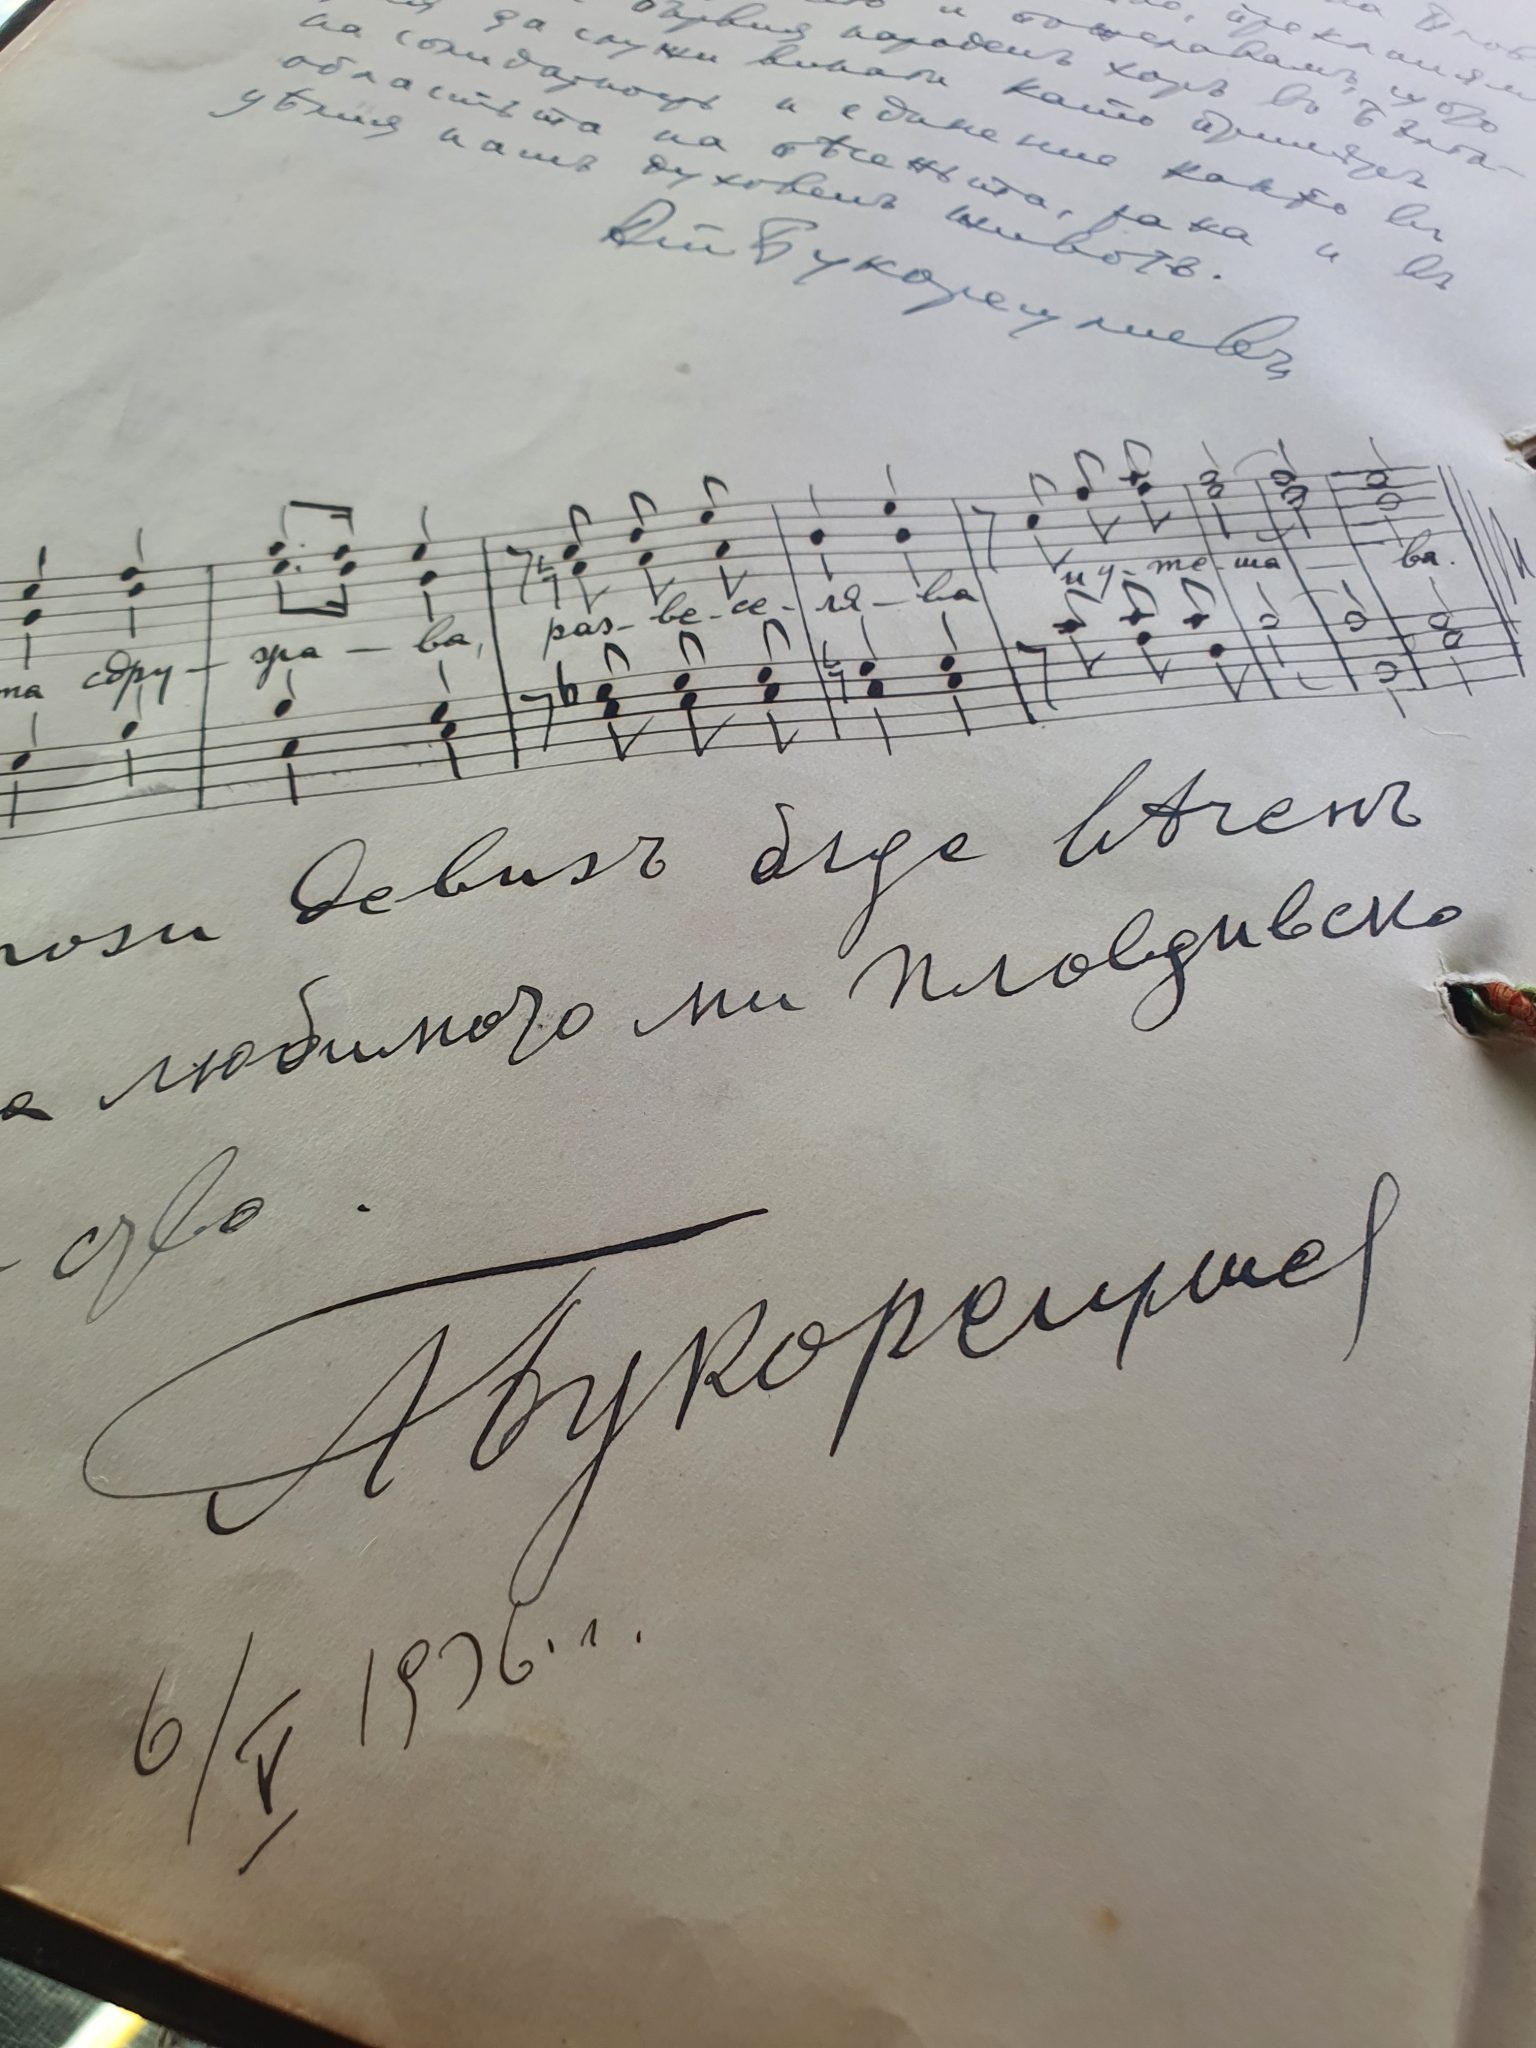 на Плов
и пожелавамъ, що
първия народенъ хоръ въ Бълга-
да служи винаги като примѣръ
на солидарность и единение както въ
областьта на пѣсеньта, така и въ
цѣлия нашъ духовенъ животъ.
Ат Букорещлиевъ
та сдру- жа - ва, раз- ве- се- ля- ва и у- те- ша - ва.
този девизъ бѫде вѣченъ
любимото ми пловдивско
ство.
АБукорещлиев
6/V 1936 г.